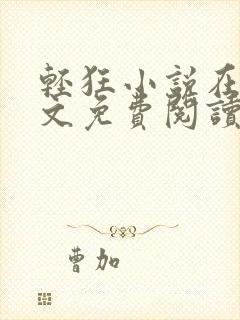 輕狂小說在
文免費閱讀
曹加